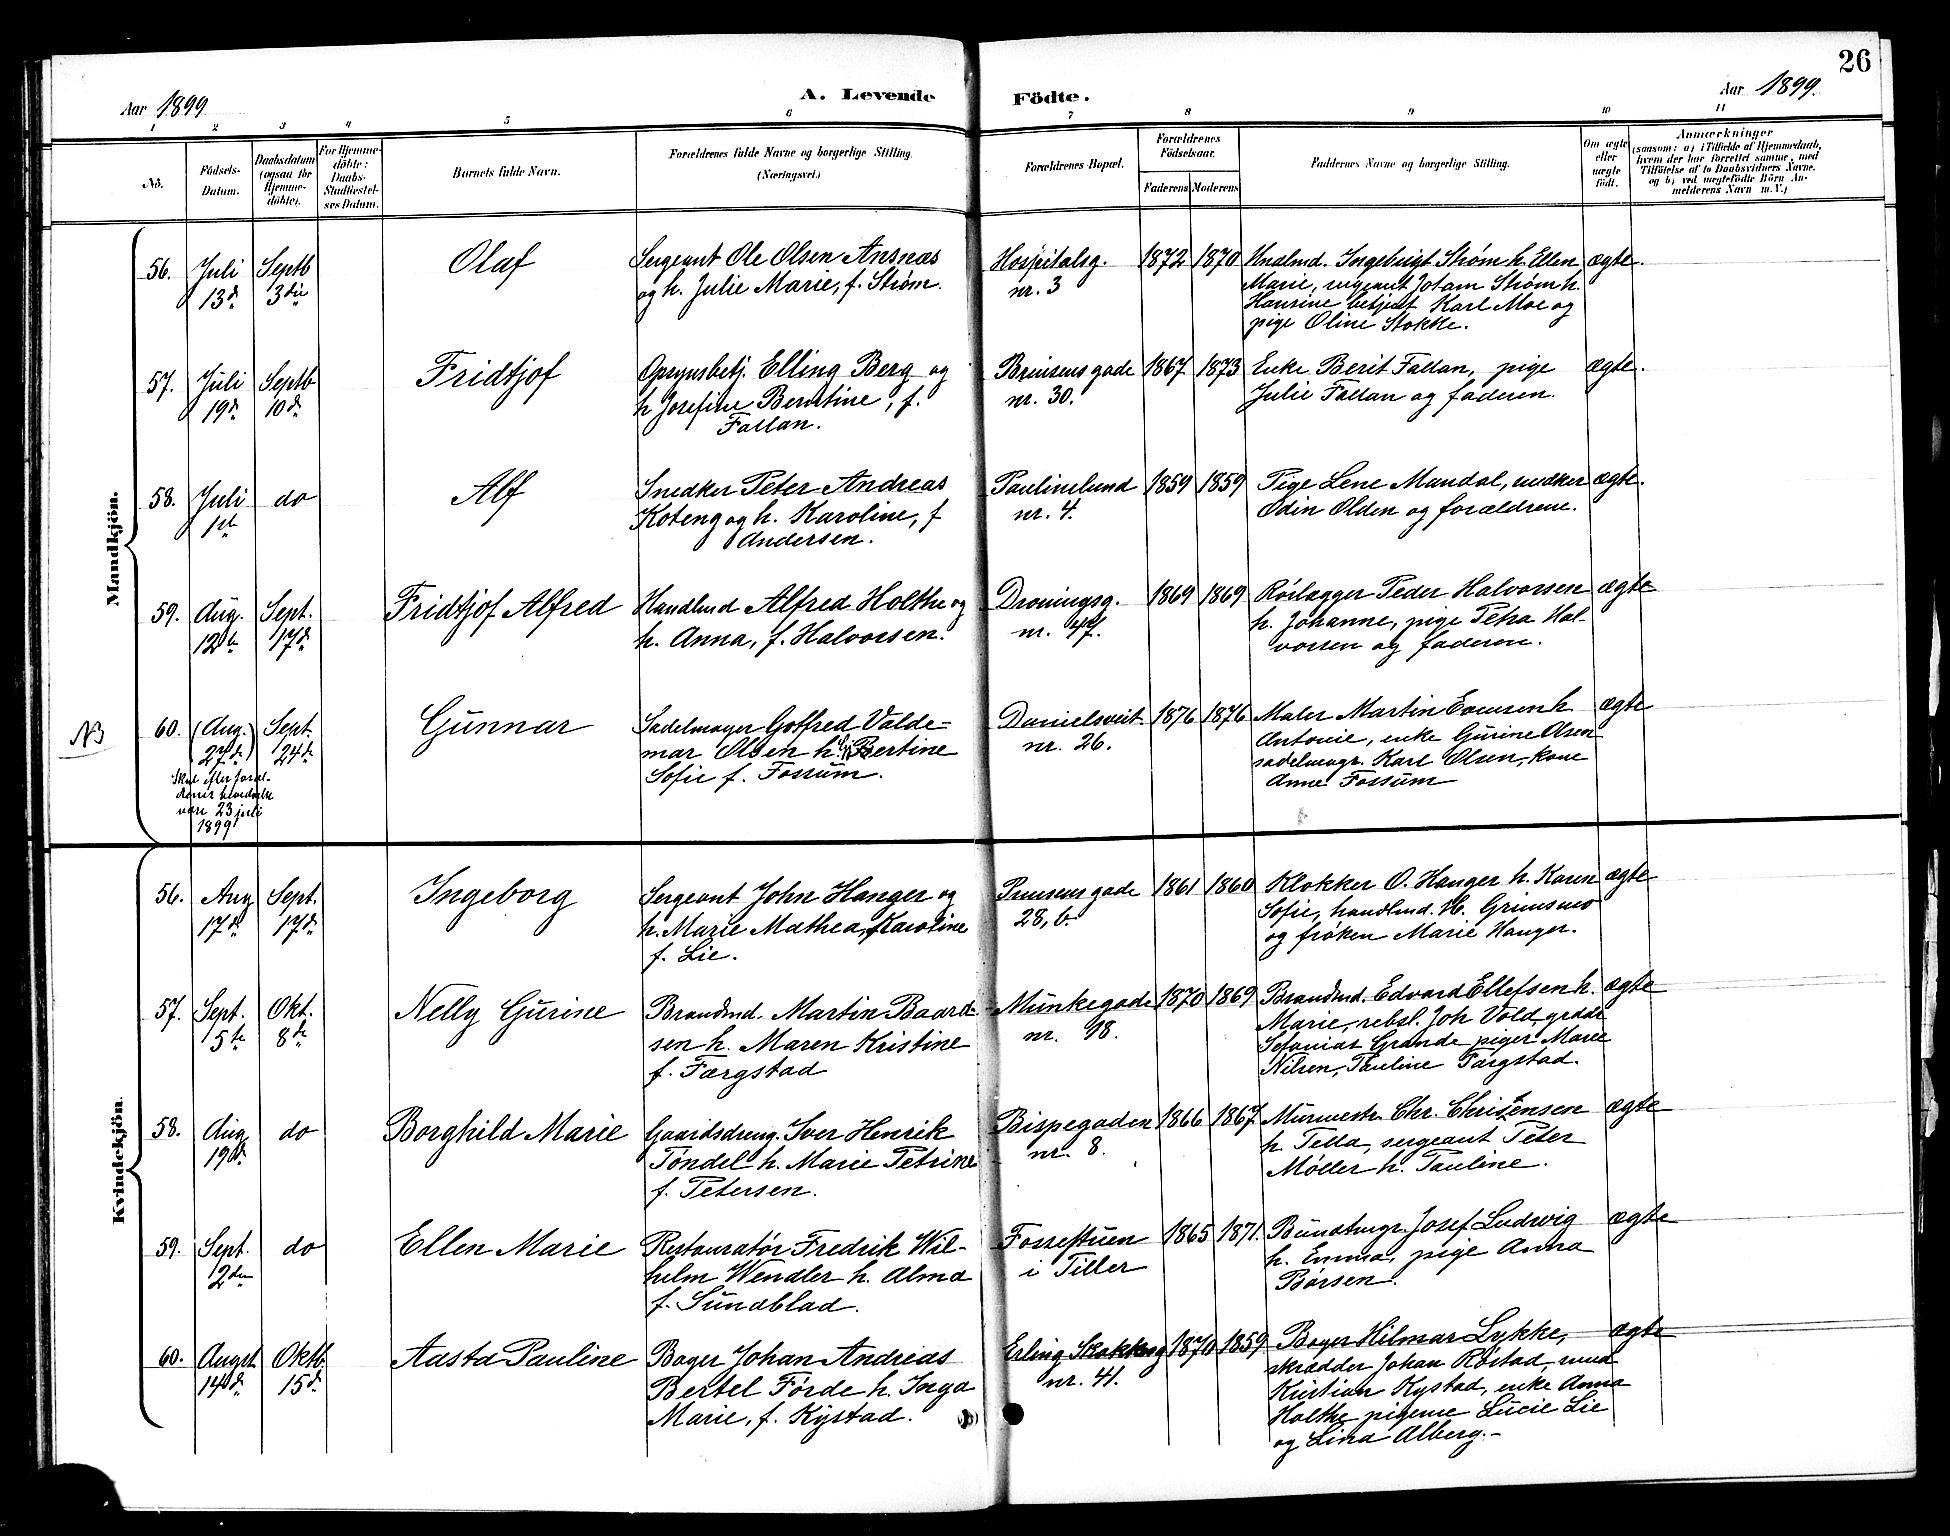 26
Aar 1899
A. Levende Födte.
Aar 1899.
1 2 3 4 5 6 7 8 9 10 11
No.
Födsels-Datum.
Daabsdatum (ogsaa for Hjemmedöbte).
For Hjemmedöbte: Daabs-Stadfæstelses Datum.
Barnets fulde Navn.
Forældrenes fulde Navne og borgerlige Stilling.
(Næringsvei.)
Forældrenes Bopæl.
Forældrenes Födselsaar.
Faderens Moderens
Faddernes Navne og borgerlige Stilling.
Om ægte eller uægte födt.
Anmærkninger
(saasom: a) i Tilfælde af Hjemmedaab, hvem der har forrettet samme, med Tilföielse af to Daabsvidners Navne, og b) ved uægtefödte Börn Anmelderens Navn m. V.)
Mandkjön.
56. Juli 13de Septb 3die
Olaf
Sergeant Ole Olsen Ansnæs
og h. Julie Marie, f. Strøm.
Hospitalsg.
nr. 3
1872 1870
Handlmd. Ingebrigt Strøm h. Ellen
Marie, sergeant Jotam Strøm h.
Hansine betjent Karl Moe og
pige Oline Stokke.
ægte.
57. Juli 19de Septb 10de
Fridtjof
Opsynsbetj. Elling Berg og
h Josefine Berntine, f.
Fallan.
Brinsens gade
nr. 30.
1867 1873
Enke Berit Fallan, pige
Julie Fallan og faderen.
ægte.
58. Juli 1ste do
Alf
Snedker Peter Andreas
Koteng og h. Karoline, f
Andersen.
Paulinelund
nr. 4.
1859 1859
Pige Lene Mandal, snedker
Odin Olden og forældrene.
ægte.
59. Aug. 12te Sept. 17de
Fridtjof Alfred
Handlmd Alfred Holthe og
h. Anna, f. Halvorsen.
Droningsg.
nr. 47.
1869 1869
Rørlægger Peder Halvorsen
h. Johanne, pige Petra Hal-
vorsen og faderen.
ægte
NB
60. (Aug. 27de) Sept. 24de
Skal efter foræl-
drenes
være 23 juli
1899
Gunnar
Sadelmager Gotfred Valde-
mar Olsen h. Bertine
Sofie f. Fossum.
Danielsveit
nr. 26.
1876 1876
Maler Martin Evensen h
Antonie, enke Gurine Olsen
sadelmagr. Karl Olsen, kone
Anne Fossum
ægte
Kvindekjön.
56. Aug 17de Sept. 17de
Ingeborg
Sergeant John Hanger og
h. Marie Mathea, Karoline
f. Lie.
Prinsens gade
28, b.
1861 1860
Klokker O. Hanger h. Karen
Sofie, handlmd. H. Grimsmo
og frøken Marie Hanger.
ægte
57. Sept. 5te Okt. 8de
Nelly Gurine
Brandmd. Martin Baard-
sen h. Maren Kristine
f. Færgstad
Munkegade
nr. 18.
1870 1869
Brandmd. Edvard Ellefsen h.
Marie, rebsl. Joh Vold,
Sefanias Grande piger Marie
Nilsen, Pauline Færgstad.
ægte
58. Aug 19de do
Borghild Marie
Gaardsdreng. Iver Henrik
Tøndel h. Marie Petrine
f. Petersen.
Bispegaden
nr. 8.
1866 1867
Murmestr. Chr. Christensen
h. Tella, sergeant Peter
Møller h. Pauline.
ægte
59. Sept. 2den do
Ellen Marie
Restauratør Fredrik Wil-
helm Wendler h. Alma
f. Sundblad.
Fossestuen
i Tiller
1865 1871.
Buntmgr. Josef Ludvig
h. Emma, pige Anna
Børsen.
ægte
60. Augst 14de Oktb 15de
Aasta Pauline
Bager Johan Andreas
Bertel Førde h. Inga
Marie, f. Kystad.
Erling Skakkesg
nr. 41.
1870 1859
Bager Hilmar Lykke,
skrædder Johan Røstad,
Kristian Kystad, enke Anna
Holthe pigerne Lucie Lie
og Lina Alberg.-
ægte